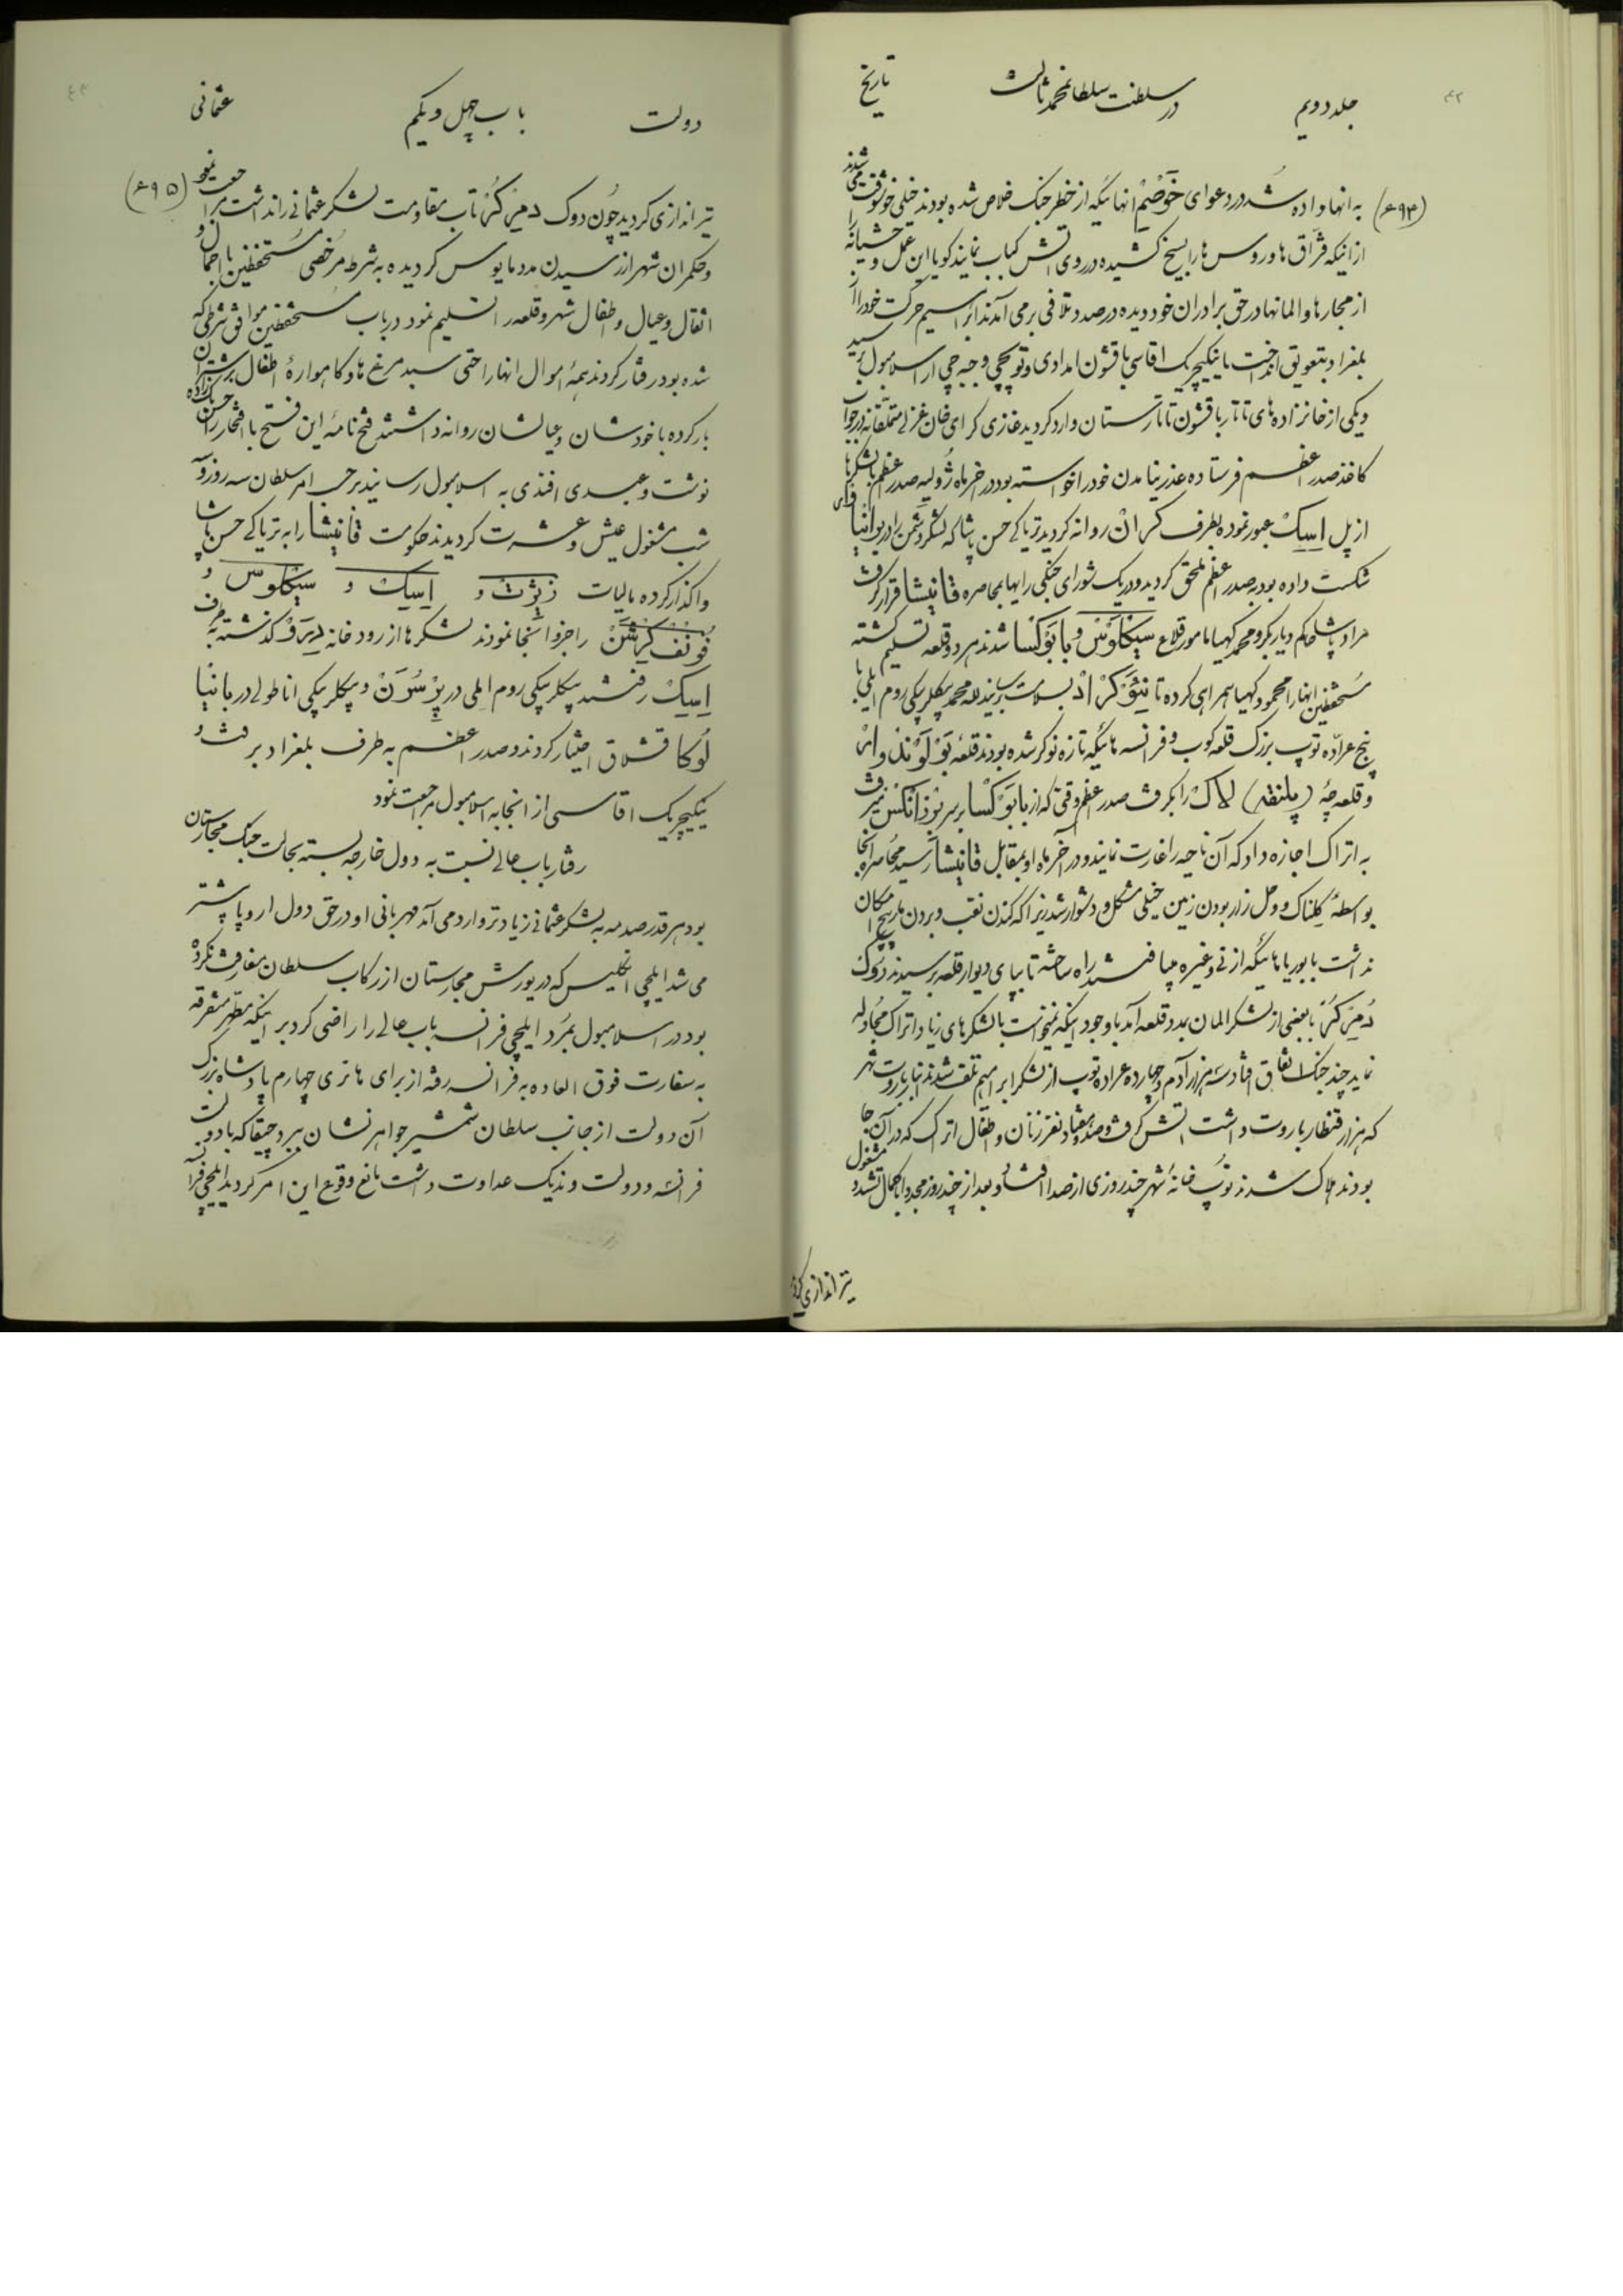 ۴۲
جلد دویم
در سلطنت سلطان محمد ثالث
تاریخ
(۶۹۴) به انها داده شد در دعوای انهائیکه از خطر جنک خلاص شده بودند خیلی خوشوقت می شدند
از اینکه قزاق ها و روس ها را بسیخ کشیده در روی اتش کباب نمایند کویا این عمل وحشیانه را
از مجارها و المانها در حق برادران خود دیده در صدد تلافی برمی آمدند ابراهیم حرکت خود را از
بلغراد بتعویق انداخت تا ینکیچریک اقاسی با قشون امدادی و توپچی و جبه چی از اسلامبول برسید
و یکی از خانزاده های تاتار با قشون تاتارستان وارد کردید غازی کرای خان غزلی متملقانه در جواب
کاغذ صدر اعظم فرستاده عذر نیامدن خود را خواسته بود در اخر ماه ژولیه صدر اعظم با لشکرها
از پل اسک عبور نموده بطرف کران روانه کردید تریاکی حسن پاشا که لشکر دشمن را در
شکست داده بود به صدر اعظم ملحق کردید و در یک شورای جنکی رایها بمحاصره قانیشا قرار کرفت
مراد پاشا حاکم دیاربکر و محمد کهیا مامور قلاع سیکلوس و بابوکسا شدند هر دو قلعه تسلیم کشته
مستحفظین انها را محمود کهیا همراهی کرده تا بسلامت برسانید لله محمد بیکلربیکی روم ایلی با
پنج عراده توپ بزرک قلعه کوب و فرانسه هائیکه تازه نوکر شده بودند قلعه
و قلعه چه (پلنقه) لاک را بکرفت صدر اعظم وقتی که از بابوکسا بر سر میرفت
به اتراک اجازه داد که آن ناحیه را غارت نمایند و در آخر ماه او بمقابل قانیشا رسید محاصره انجا
بواسطهٔ کلناک و وحل زار بودن زمین خیلی مشکل و دشوار شد زیرا که کندن نقب و بردن مارپیچ امکان
نداشت با بوریاهائیکه از نی و غیره میبافتند راه ساخته تا بپای دیوار قلعه برسیدند دوک
دمرکر با بعضی از لشکر المان بمدد قلعه آمد با وجود اینکه نمیخواست با لشکرهای زیاد اتراک مجادله
نماید چند جنک اتفاق افتاد سه هزار آدم و چهارده عراده توپ از لشکر ابراهیم تلف شدند انبار باروت شهر
که هزار قنطار باروت داشت اتش کرفت و صد و هفتاد نفر زنان و اطفال اتراک که در آن جا
بودند هلاک شدند توپ خانهٔ شهر چند روزی از صدا افتاد و بعد از چند روز مجددا باکمال تشدد مشغول
تیر اندازی کردید
دولت
باب چهل و یکم
عثمانی
(۶۹۵)
تیراندازی کردید چون دوک دمرکر تاب مقاومت لشکر عثمانی را نداشت مراجعت نمود
و حکمران شهر از رسیدن مدد مایوس کردیده به شرط مرخصی مستحفظین با احمال و
اثقال و عیال و اطفال شهر و قلعه را تسلیم نمود در باب مستحفظین موافق شرطی که
شده بود رفتار کردند همهٔ اموال انها را حتی سبد مرغ ها و کاهوارهٔ اطفال بر شتران
بار کرده با خودشان و عیالشان روانه داشتند فتح نامهٔ این فتح با افتخار را حسن بک زاده
نوشت و عبدی افندی به اسلامبول رسانید بر حسب امر سلطان سه روز و سه
شب مشغول عیش و عشرت کردیدند حکومت قانیشا را به تریاکی حسن پاشا
واکذار کرده مالیات زیژت و اسک و سیکلوس و
را جزو انجا نمودند لشکرها از رودخانه کذشته به طرف
اسک رفتند بیکلربیکی روم ایلی در و بیکلربیکی اناطولی در
لوکا قشلاق اختیار کردند و صدر اعظم به طرف بلغراد برفت و
ینکیچریک اقاسی از انجا به اسلامبول مراجعت نمود
رفتار باب عالی نسبت به دول خارجه بسته بحالت جنک مجارستان
بود هر قدر صدمه به لشکر عثمانی زیادتر وارد می آمد مهربانی او در حق دول اروپا بیشتر
می شد ایلچی انکلیس که در یورش مجارستان از رکاب سلطان مفارقت نکرده
بود در اسلامبول بمرد ایلچی فرانسه باب عالی را راضی کرد بر اینکه متفرقه
به سفارت فوق العاده به فرانسه رفته از برای هانری چهارم پادشاه بزرک
آن دولت از جانب سلطان شمشیر جواهر نشان ببرد چیقا که با دولت
فرانسه و دولت وندیک عداوت داشت مانع وقوع این امر کردید ایلچی فرانسه